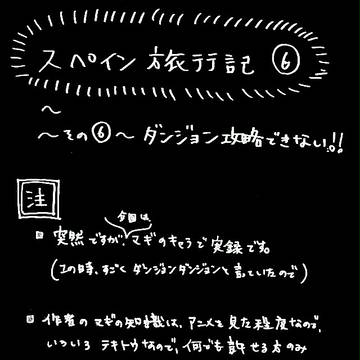 スペイン旅行記⑥
～
～その⑥～ ダンジョン攻略できない!!
注
今回は、
突然ですが、マギのキャラで実録です。
(この時、すごくダンジョンダンジョンと言っていたので)
作者のマギの知識は、アニメを見た程度なので、
いろいろテキトウなので、何でも許せる方のみ